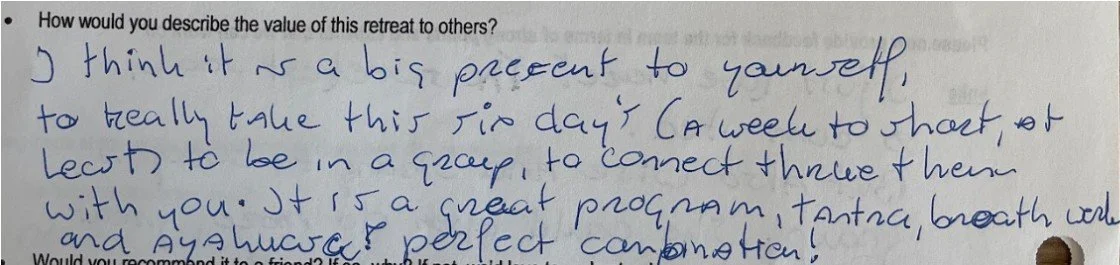 • How would you describe the value of this retreat to others?
I think it is a big present to yourself,
to really take this six day's (A week to short, at
least) to be in a group, to connect thrue them
with you. It is a great program, tantra, breath work
and Ayahuasca! perfect combination!
Would you recommend it to a friend? If so, why? If not,